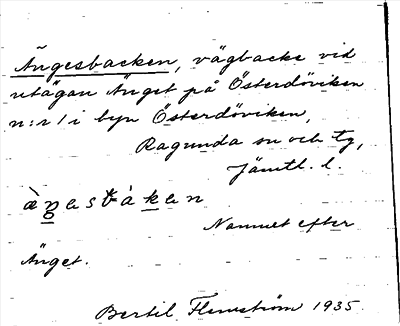 Ängesbacken, vägbacke vid
utägan Änget på Österdöviken
n:r 1 i byn Österdöviken,
Ragunda sn och tg,
Jämtl. l.
Namnet efter
Änget.
Bertil Flemström 1935.